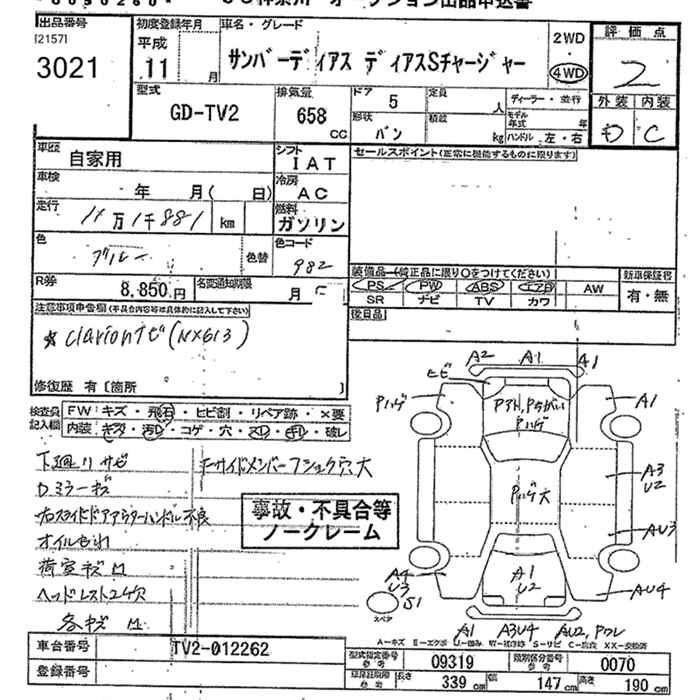 出品番号
[2157]
3021
初度登録年月
平成
11 月
車名・グレード
サンバーディアス ディアスSチャージャー
2WD
・
4WD
評価点
2
外装 内装
D C
型式
GD-TV2
排気量
658 CC
ドア
5
定員
人
ディーラー・並行
形状
バン
積載
kg
モデル年式 年
ハンドル 左・右
車歴
自家用
シフト
IAT
セールスポイント(正常に機能するものに限ります)
車検
年 月( 日)
冷房
AC
走行
11万1千881 km
燃料
ガソリン
色
ブルー
色替
色コード
982
装備品(純正品に限り○をつけてください)
新車保証書
PS PW ABS エアB AW
有・無
SR ナビ TV カワ
R券
8,850円
名変通知期限
月
後日品
注意事項申告欄(不具合内容等は具体的に記入して下さい)
☆clarionナビ(NX613)
修復歴 有〔箇所 〕
検査員記入欄
FW キズ・飛石・ヒビ割・リペア跡・×要
内装 キズ・汚レ・コゲ・穴・スレ・切レ・破レ
下廻リサビ
Fサイドメンバー
Dミラーキズ
オイルもれ
荷室キズ
ヘッドレスト
各キズ
事故・不具合等
ノークレーム
A2 A1 A1
ヒビ
Pハゲ
Pハゲ
A1
A3
U2
Pハゲ大
AU3
A1
U2
A4
U3
S1
AU4
スペア
A1 A3U4 AU2,
A-キズ E-エクボ U-凹み W-補修跡 S-サビ C-腐食 XX-交換済
車台番号
TV2-012262
登録番号
型式指定番号
参考
09319
類別区分番号
参考
0070
車検証記載
参考
長さ
339 cm
幅
147 cm
高さ
190 cm